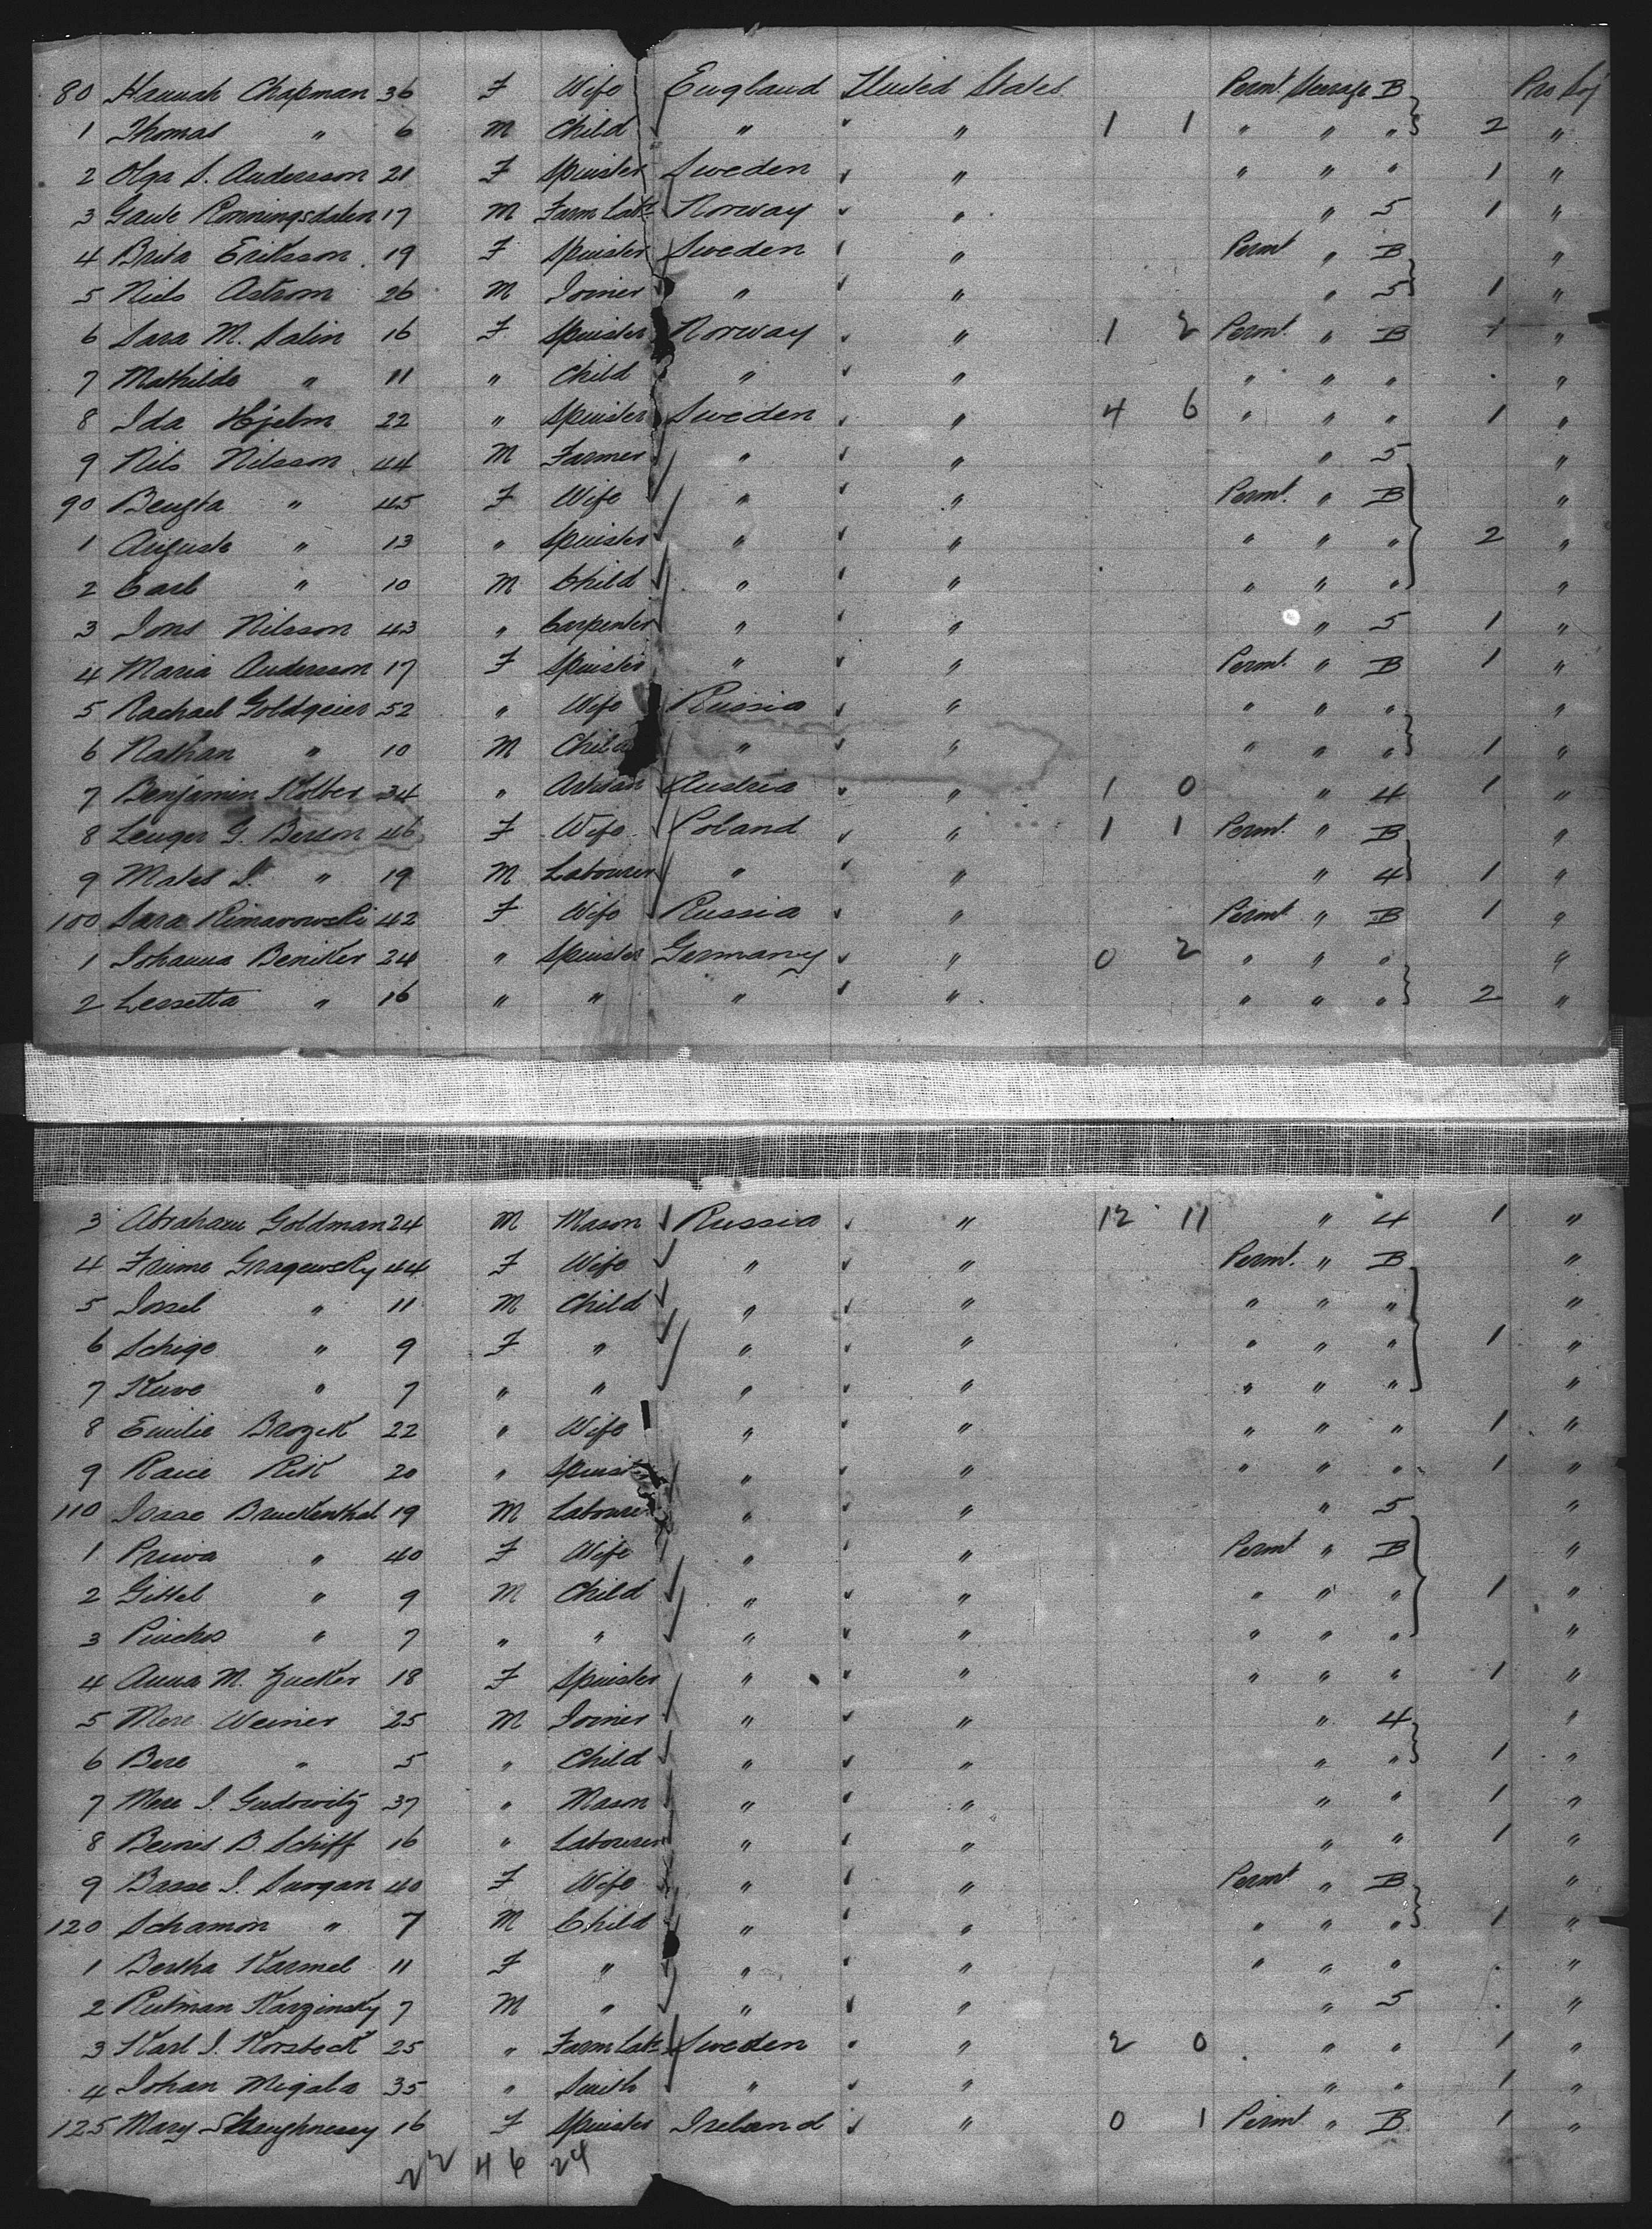 80 Hannah Chapman 36 F Wife England United States Permt. Steerage B Pro Soj
1 Thomas " 6 M Child " " 1 1 " " " 2 "
2 Olga S. Andersson 21 F Spinster Sweden " " " " 1 "
3 Ronningsdalen 17 M Farm Labr Norway " " 5 1 "
4 Brita Eriksson 19 F Spinster Sweden " Permt " B "
5 Niels Astrom 26 M Joiner " " " 5 1 "
6 Sara M. Salin 16 F Spinster Norway " 1 2 Permt. " B 1 "
7 Mathilde " 11 " Child " " " " " "
8 Ida Hjelm 22 " Spinster Sweden " 4 6 " " " 1 "
9 Nils Nilsson 44 M Farmer " " " 5 "
90 Bengta " 45 F Wife " " Permt. " B "
1 Auguste " 13 " Spinster " " " " " 2 "
2 Carl " 10 M Child " " " " " "
3 Jons Nilsson 43 " Carpenter " " " 5 1 "
4 Maria Andersson 17 F Spinster " " Permt. " B 1 "
5 Rachael Goldgeier 52 " Wife Russia " " " " "
6 Nathan " 10 M Child " " " " " 1 "
7 Benjamin Kolber 34 " Artisan Austria " 1 0 " 4 1 "
8 G. Berson 46 F Wife Poland " 1 1 Permt. " B "
9 Males I. " 19 M Labourer " " " 4 1 "
100 Sara Rimarowski 42 F Wife Russia " Permt " B 1 "
1 Johanna Beniker 24 " Spinster Germany " 0 2 " " " "
2 Lessetta " 16 " " " " " " " 2 "
3 Abraham Goldman 24 M Mason Russia " 12 11 " 4 1 "
4 Frume Gragewsky 44 F Wife " " Permt. " B "
5 Jossel " 11 M Child " " " " " "
6 Schige " 9 F " " " " " " 1 "
7 " 7 " " " " " " " "
8 Emilie Brozek 22 " Wife " " " " " 1 "
9 Rik 20 " Spinst " " " " " 1 "
110 Isaac Bruckenthal 19 M Labourer " " " 5 "
1 " 40 F Wife " " Permt " B "
2 Gittel " 9 M Child " " " " " 1 "
3 Pinches " 7 " " " " " " " "
4 Anna M. Zucker 18 F Spinster " " " " " 1 "
5 Mere Weiner 25 M Joiner " " " 4 "
6 Bere " 5 " Child " " " " 1 "
7 I. Gudowitz 37 " Mason " " " " 1 "
8 Beines B. Schiff 16 " Labourer " " " " 1 "
9 Basse I. Surgan 40 F Wife " " Permt " B "
120 Schamon " 7 M Child " " " " " 1 "
1 Bertha Karmel 11 F " " " " " " "
2 Rutman Karzinsky 7 M " " " " 5 "
3 Karl J. Korsbeck 25 " Farm Labr Sweden " 2 0 " " 1 "
4 Johan Migala 35 " Smith " " " " 1 "
125 Mary Shaughnessy 16 F Spinster Ireland " 0 1 Permt. " B 1 "
22 46 24